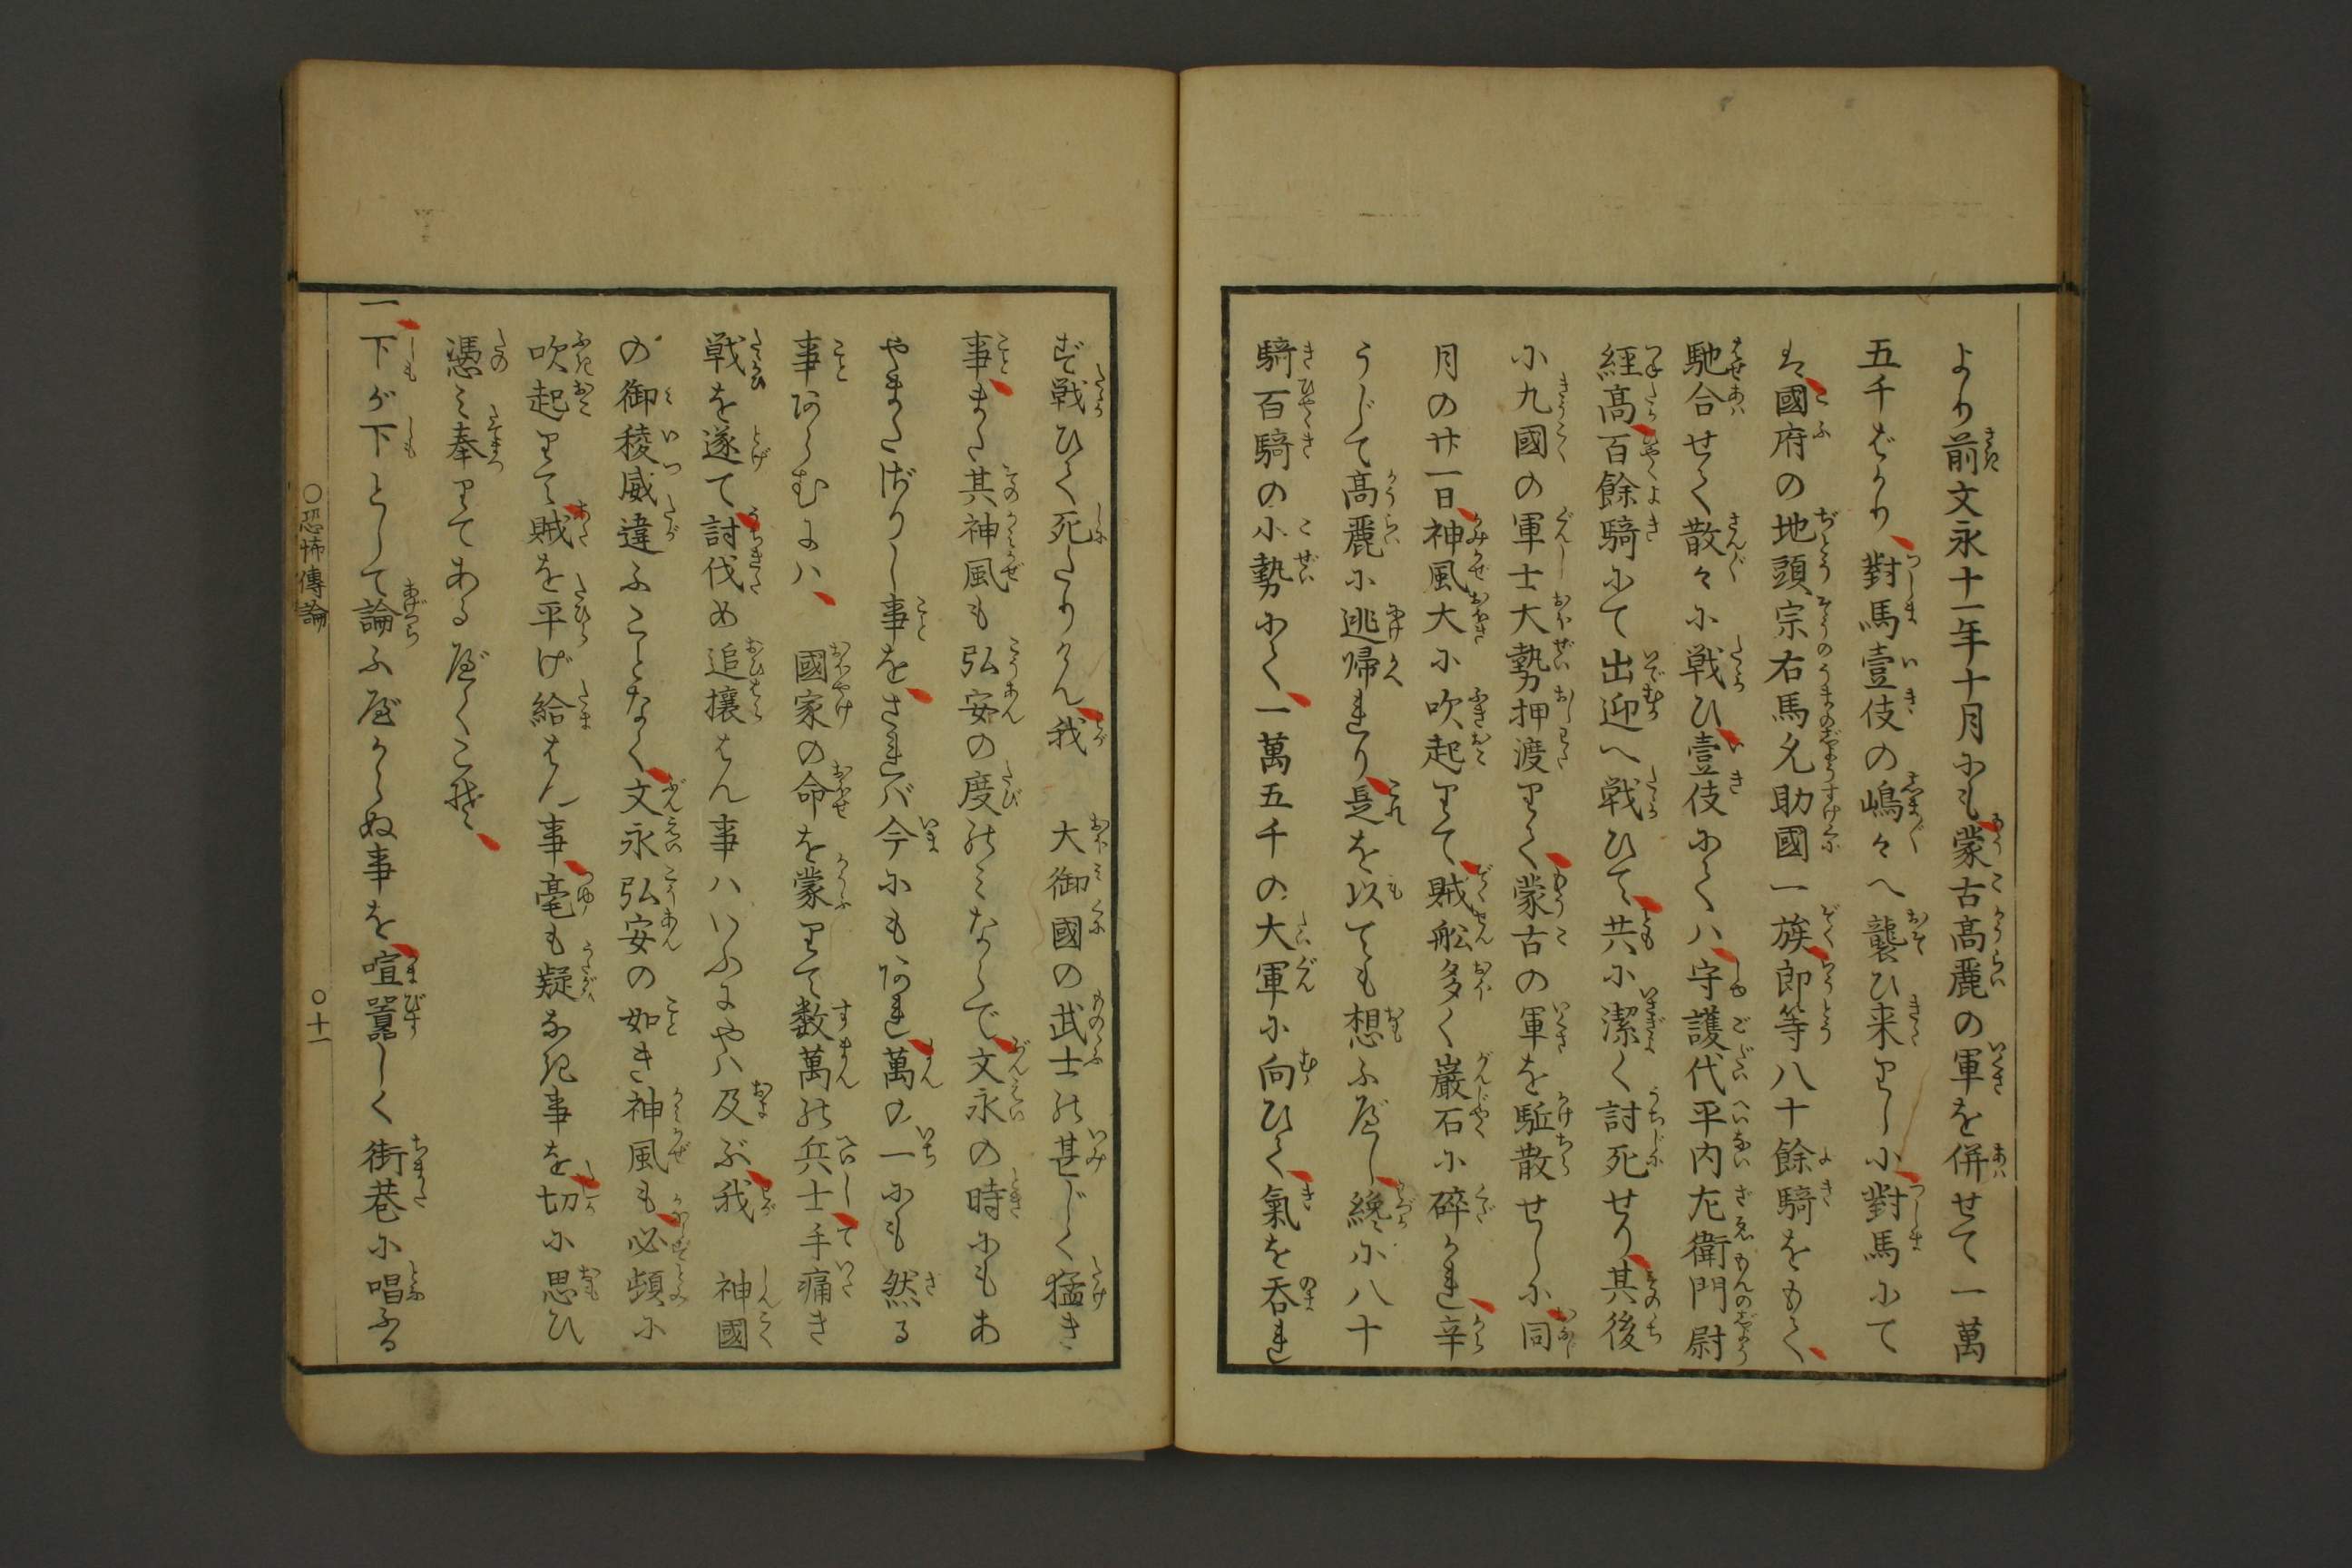 より前文永十一年十月にも蒙古高麗の軍を併せて一萬
五千ばかり對馬壹伎の嶋々へ襲ひ来りしに對馬にて
は國府の地頭宗右馬允助國一族郎等八十餘騎をもて
馳合せて散々に戦ひ壹伎にてハ守護代平内左衛門尉
經髙百餘騎にて出迎へ戦ひて共に潔く討死せり其後
に九國の軍士大勢押渡りて蒙古の軍を駈散せしに同
月の廿一日神風大に吹起りて賊舩多く巖石に碎かれ辛
うじて髙麗に逃帰れり是を以ても想ふべし纔に八十
騎百騎の小勢にて一萬五千の大軍に向ひて氣を呑れ
ず戦ひて死たりけん我　大御國の武士の甚じく猛き
事また其神風も弘安の度のみならで文永の時にもあ
やまたざりし事をされバ今にもあれ萬の一にも然る
事あらむにハ　國家の命を蒙りて数萬の兵士手痛き
戦を遂て討伐め追攘はん事ハいふにやハ及ぶ我　神國
の御稜威違ふことなく文永弘安の如き神風も必頻に
吹起りて賊を平げ給はん事毫も疑なき事を切に思ひ
憑み奉りてあるべくこそ
一下が下として論ふべからぬ事を喧囂しく街巷に唱ふる
〇恐怖傳論
〇十一